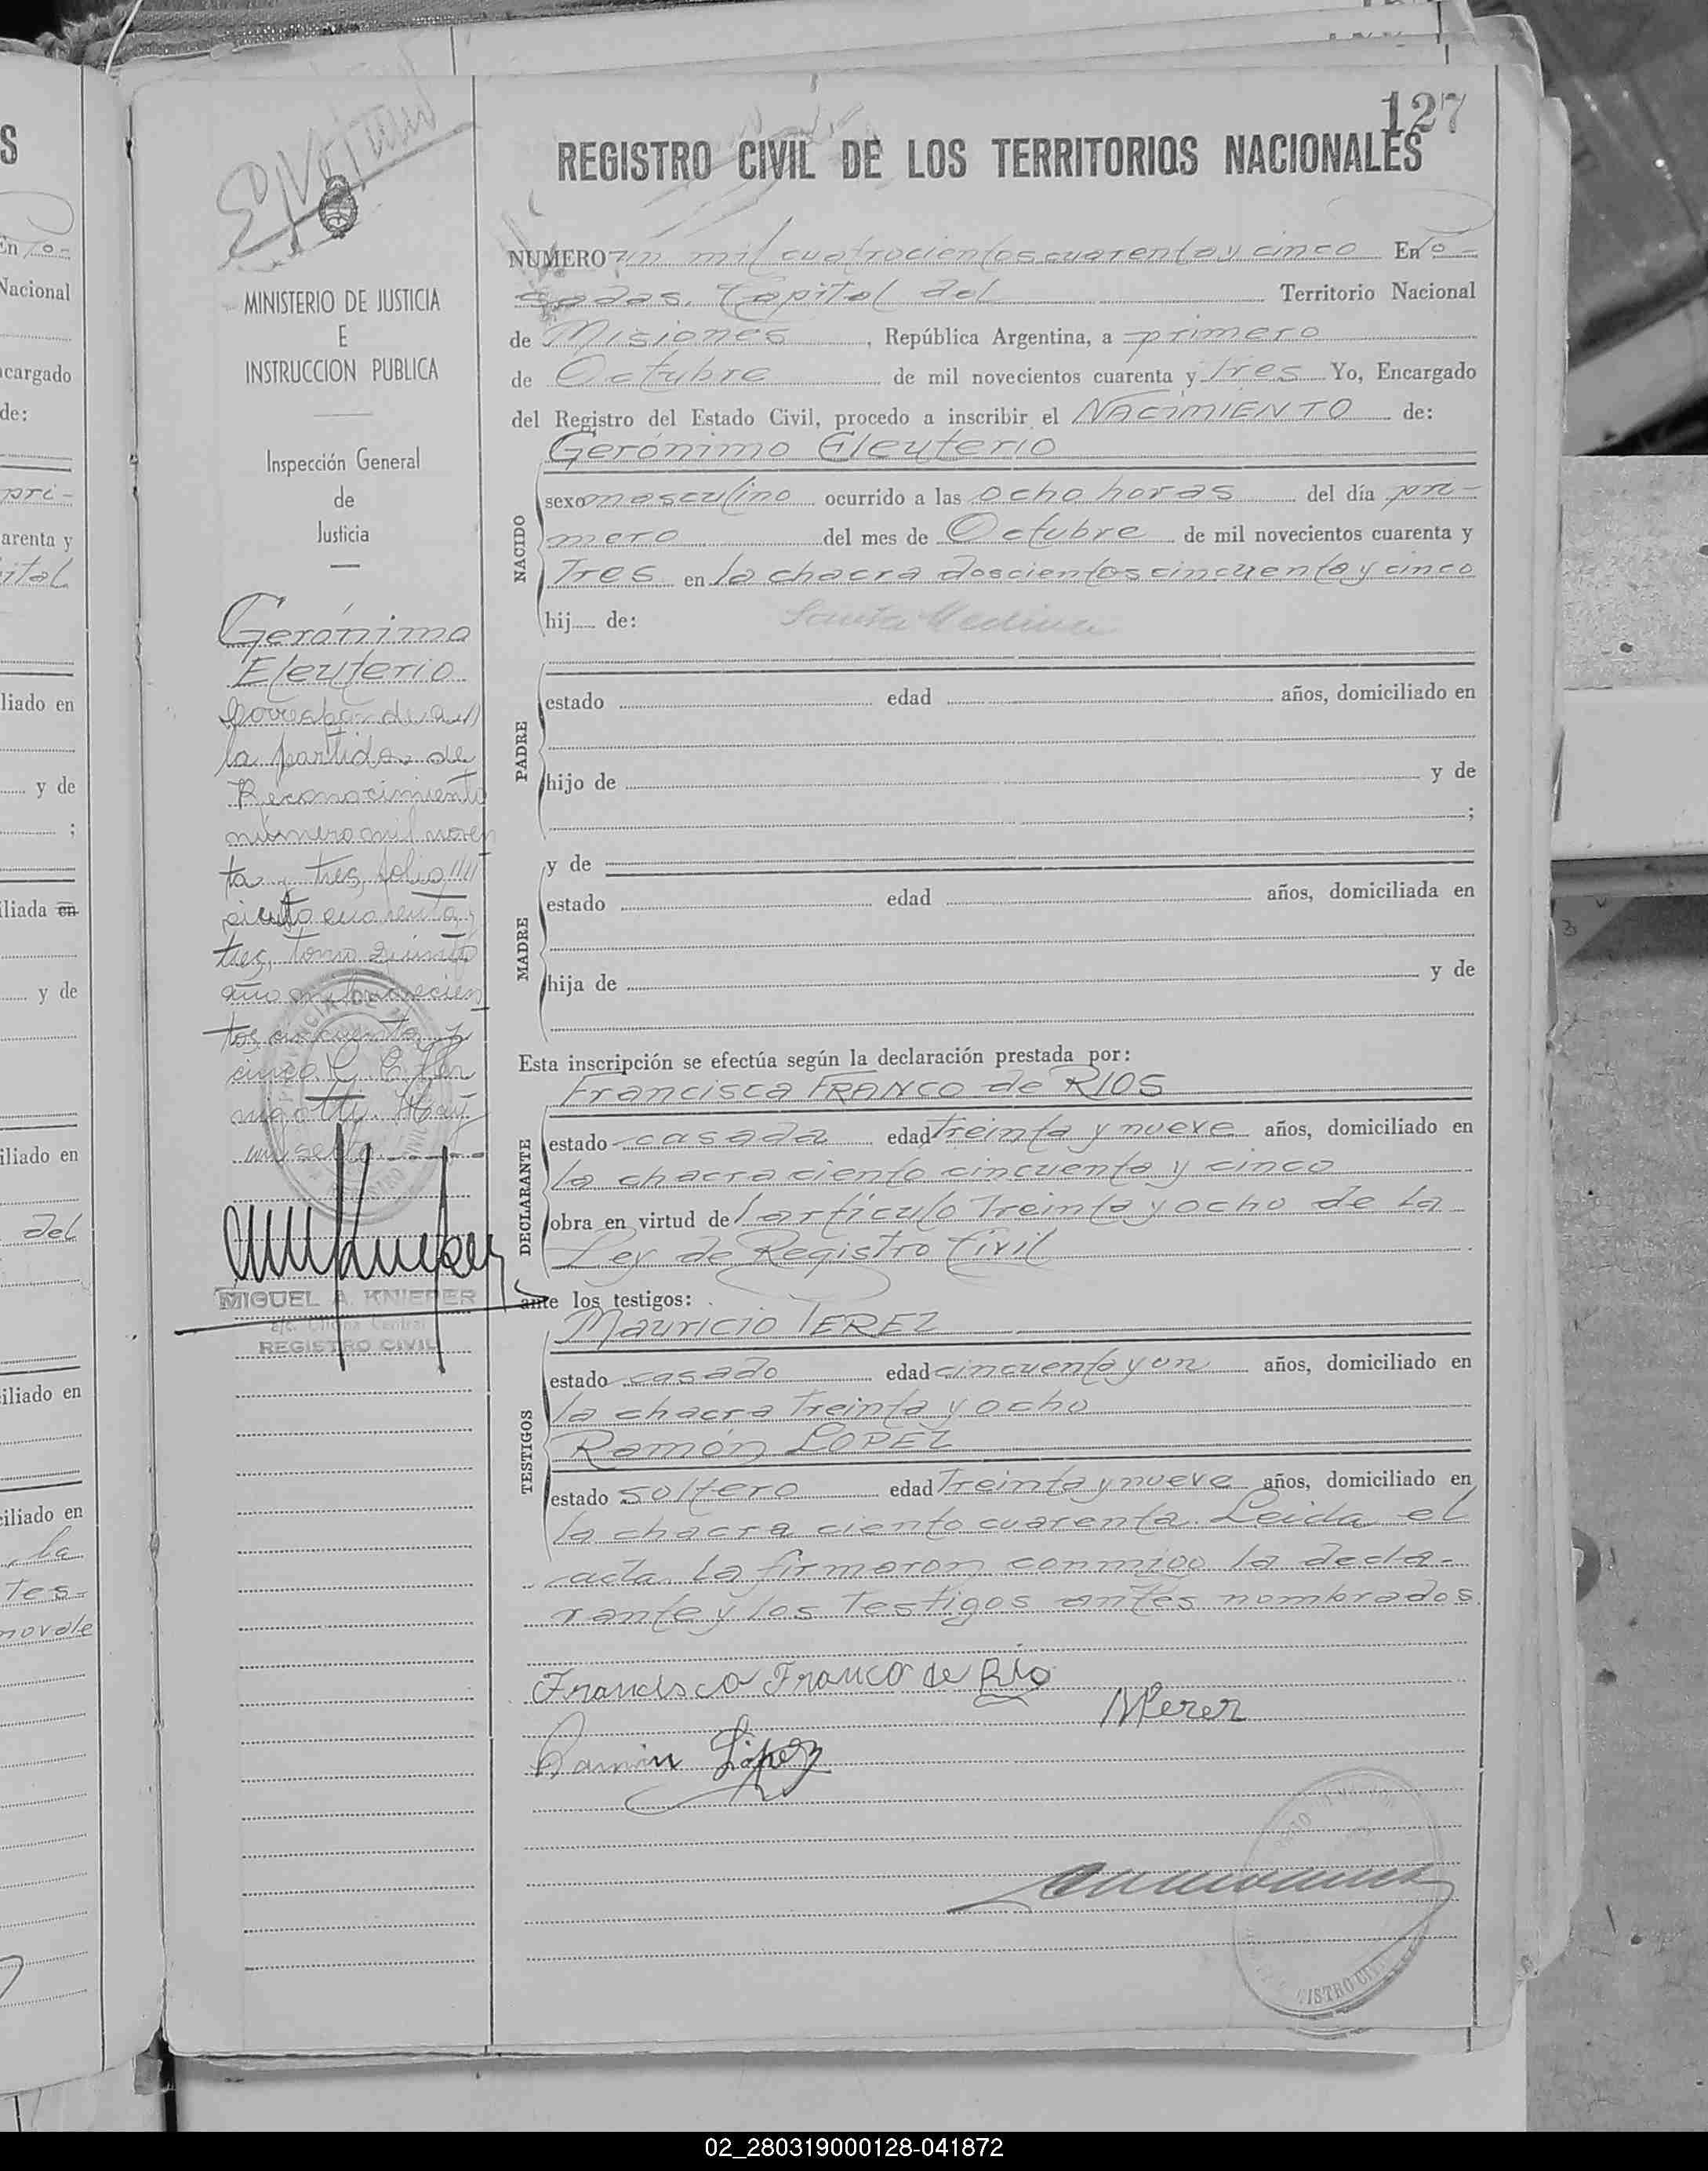 127
REGISTRO CIVIL DE LOS TERRITORIOS NACIONALES
MINISTERIO DE JUSTICIA
E
INSTRUCCION PUBLICA
Inspección General
de
Justicia
Gerónimo
Eleuterio
Corresponde a
la partida de
Reconocimiento
número mil noven
ta y tres, folio
ciento cuarenta y
tres, tomo quinto
año mil novecien
tos cincuenta y
cinco
un sello
MIGUEL A. KNIEPER
Oficina Central
REGISTRO CIVIL
NUMERO un mil cuatrocientos cuarenta y cinco En Po-
sadas, Capital del Territorio Nacional
de Misiones, República Argentina, a primero
de Octubre de mil novecientos cuarenta y tres Yo, Encargado
del Registro del Estado Civil, procedo a inscribir el NACIMIENTO de:
Gerónimo Eleuterio
NACIDO
sexo masculino ocurrido a las ocho horas del día pri-
mero del mes de Octubre de mil novecientos cuarenta y
Tres en la chacra doscientos cincuenta y cinco
hij de: Santa Medina
PADRE
estado edad años, domiciliado en
hijo de y de
;
MADRE
y de
estado edad años, domiciliada en
hija de y de
Esta inscripción se efectúa según la declaración prestada por:
DECLARANTE
Francisca FRANCO de RIOS
estado casada edad treinta y nueve años, domiciliado en
la chacra ciento cincuenta y cinco
obra en virtud del artículo treinta y ocho de la
Ley de Registro Civil
ante los testigos:
TESTIGOS
Mauricio PEREZ
estado casado edad cincuenta y un años, domiciliado en
la chacra treinta y ocho
Ramón LOPEZ
estado soltero edad treinta y nueve años, domiciliado en
la chacra ciento cuarenta. Leida el
acta la firmaron conmigo la decla-
rante y los testigos antes nombrados.
Francisca Franco de Rio
MPerez
Ramón López
02_280319000128-041872